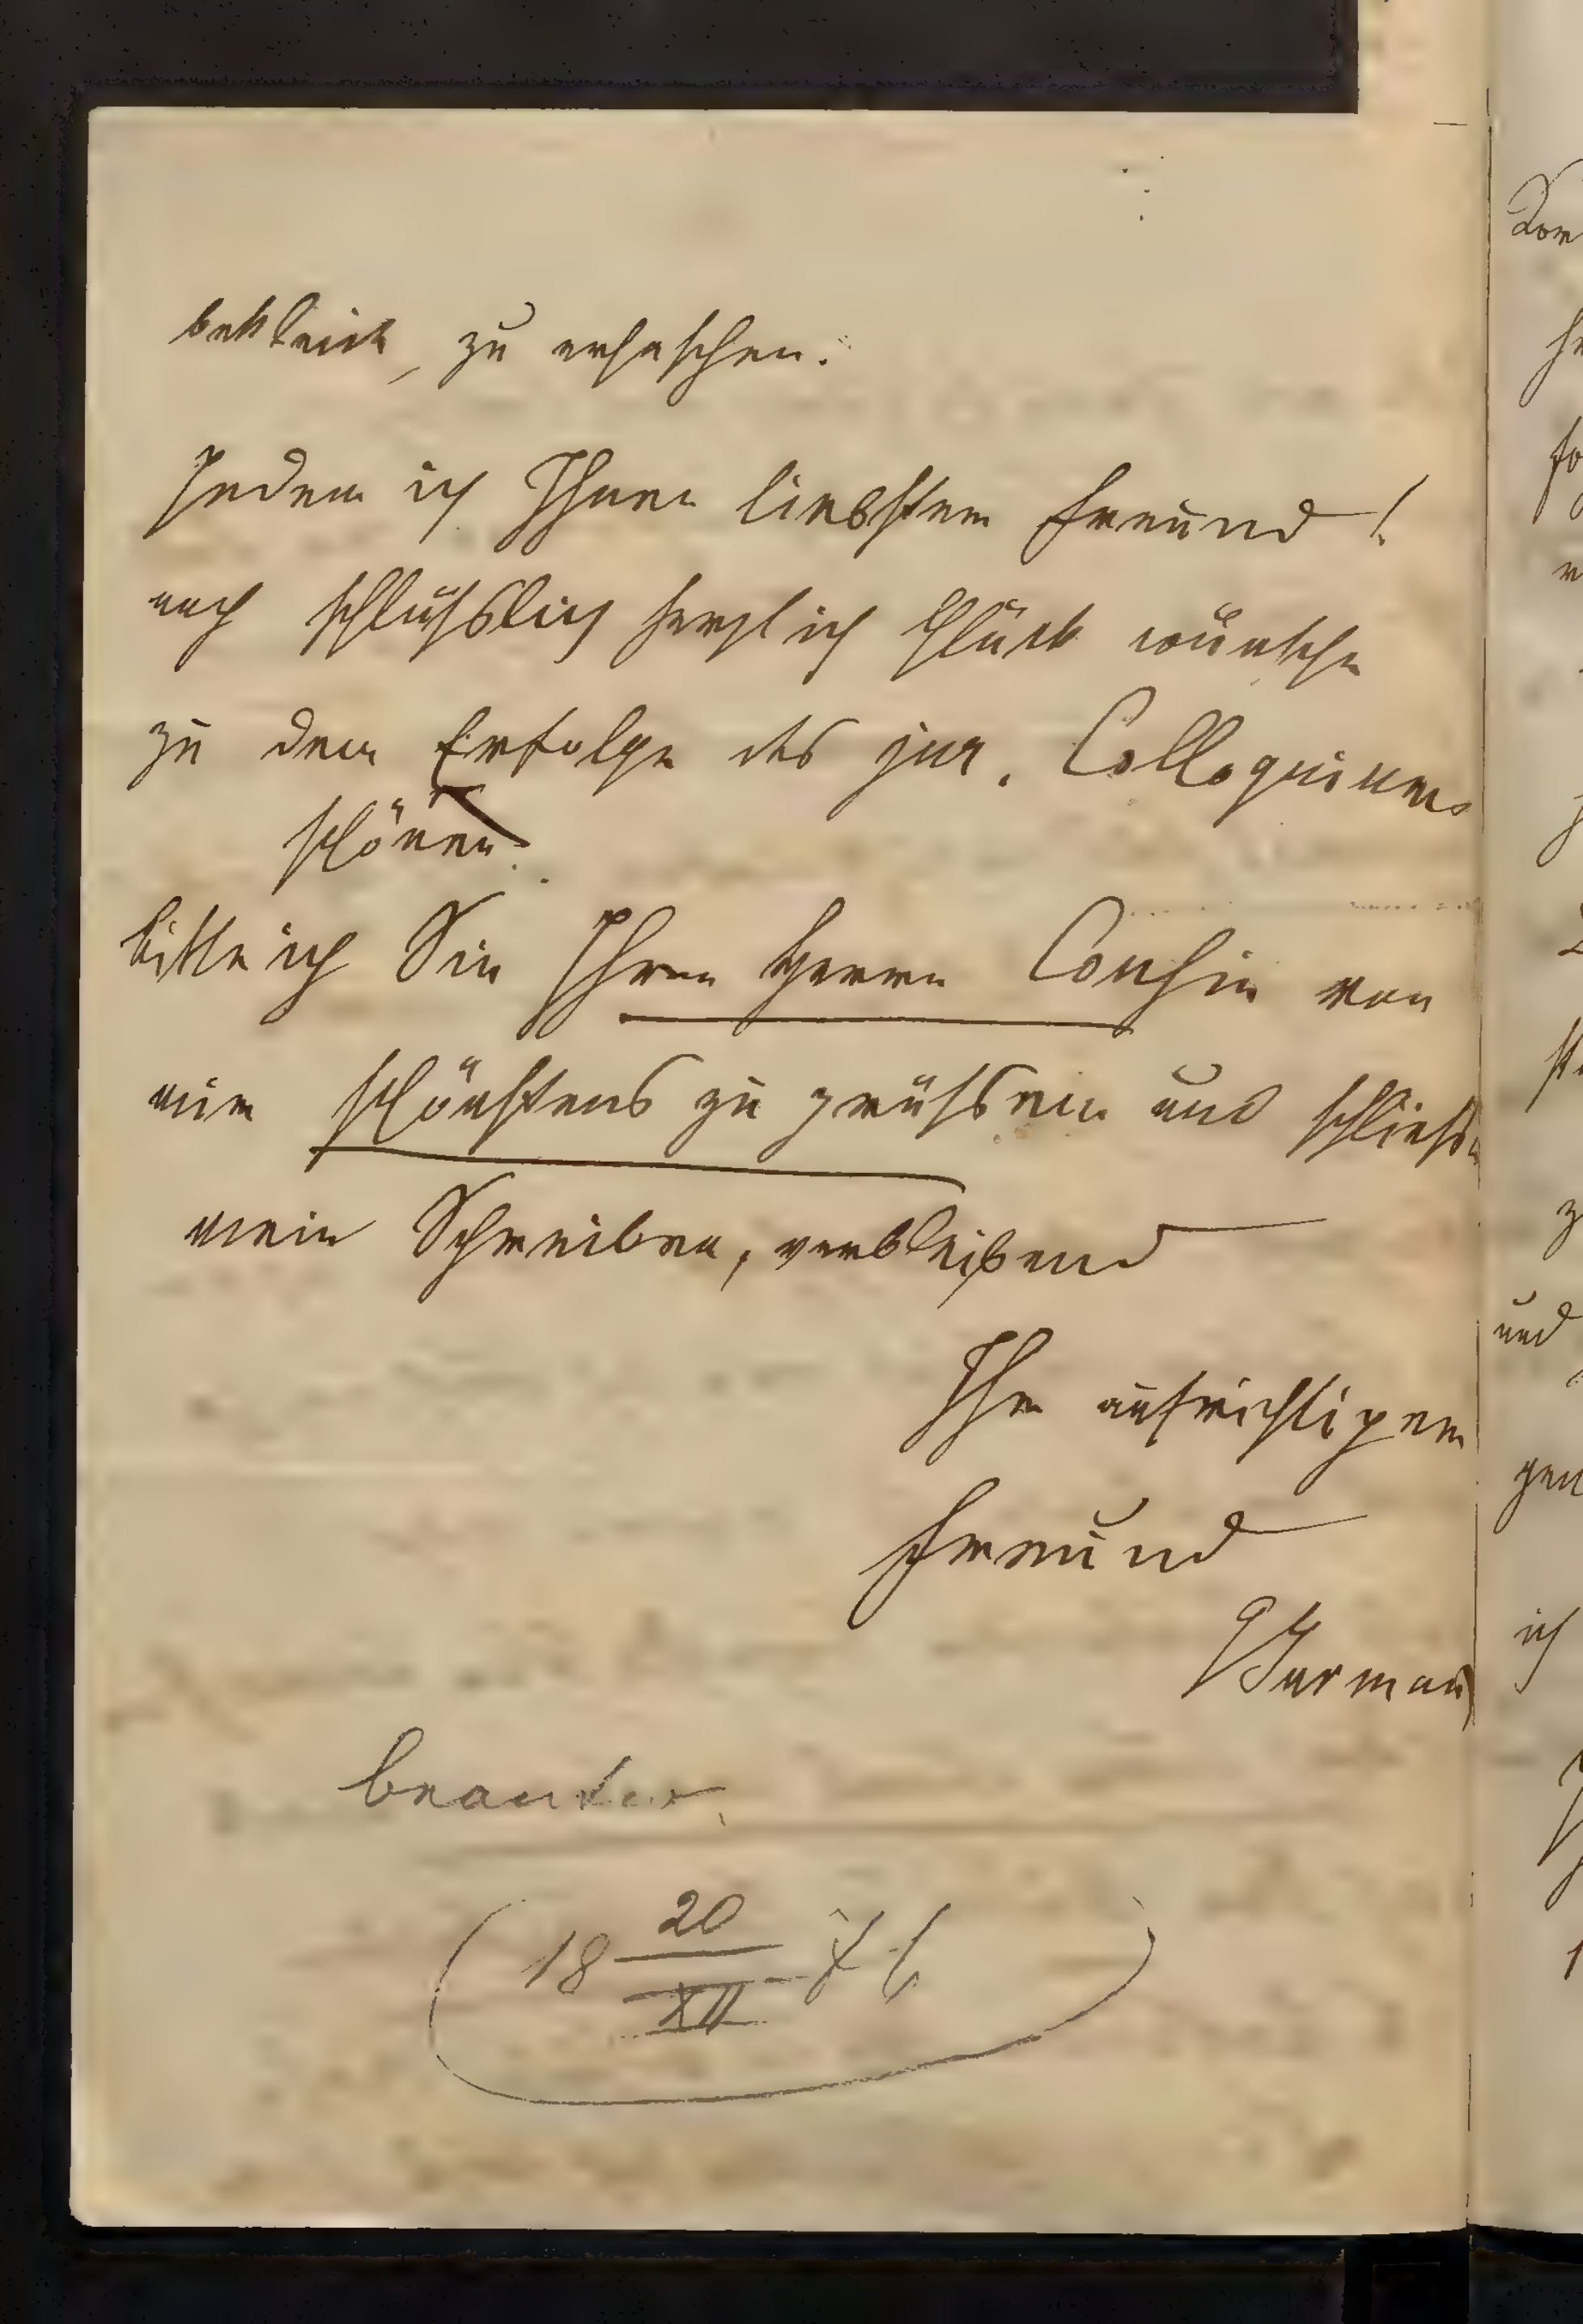 zu erhaschen.
Indem ich Ihnen liebster Freund!
noch schlüsslich herzlich Glück wünsche
zu dem Erfolge des jur. Colloquiums
schönen
bitte ich Sie Ihren Herrn Cousin von
mir schönstens zu grüssen und schliesse
mein Schreiben, verbleibend
Ihr aufrichtiger
Freund
beantw.
18 20/XII 76